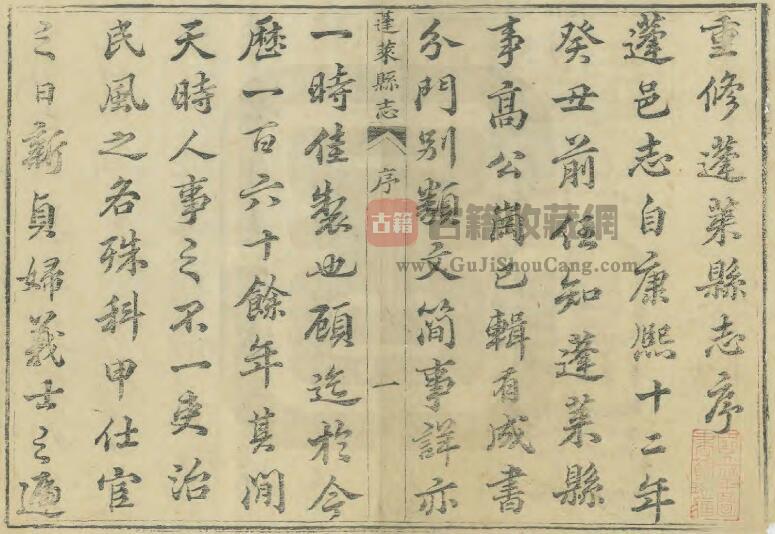 重修蓬萊縣志序
蓬邑志自康熙十二年
癸丑前任知蓬萊縣
事高公崗已輯有成書
分門别類文簡事詳亦
蓬萊縣志
序
一
一時佳製也顧迄於今
歷一百六十餘年其間
天時人事之不一吏治
民風之各殊科甲仕宦
之日新貞婦義士之
古籍
古籍收藏網
www.GuJiShouCang.com